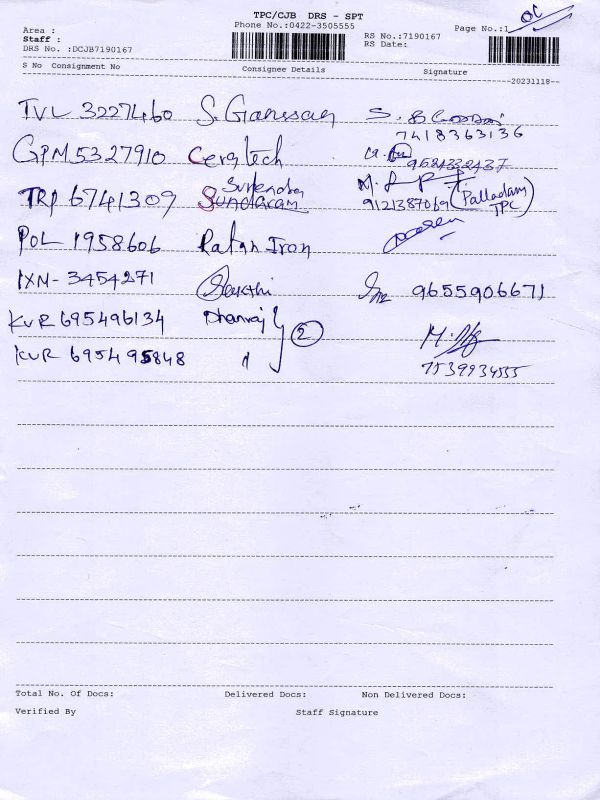 TPC/CJB DRS - SPT
OC
Area :
Phone No.:0422-3505555
Page No.:1
Staff :
RS No.:7190167
DRS No. :DCJB7190167
RS Date:
S No Consignment No Consignee Details Signature
20231118
TVL 3227460 S. Ganesan
7418363136
GPM 5327910 Ceratech
TRP 6741309 Surendra Sundaram
9121387069 (Palladam TPC)
POL 1958606 Ratan Iron
IXN- 3454271 Sakthi 9655906671
KUR 695496134 Dhanraj
2
KUR 695495848 "
7539934555
Total No. Of Docs: Delivered Docs: Non Delivered Docs:
Verified By Staff Signature